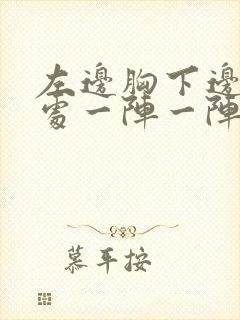 左邊胸下邊
處一陣一陣
慕平按